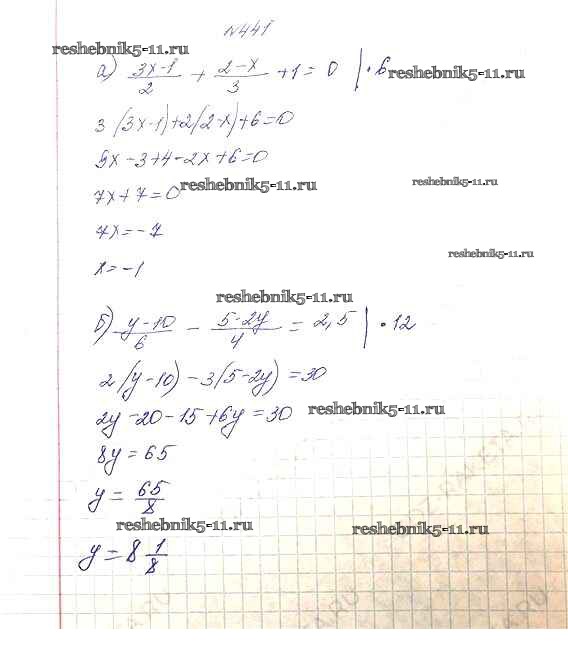 №441
reshebnik5-11.ru
а) (3x-1)/2 + (2-x)/3 + 1 = 0 | · 6 reshebnik5-11.ru
3(3x-1)+2(2-x)+6=0
9x-3+4-2x+6=0
7x+7=0 reshebnik5-11.ru reshebnik5-11.ru
7x=-7
reshebnik5-11.ru
x=-1
reshebnik5-11.ru
б) (y-10)/6 - (5-2y)/4 = 2,5 | · 12
2(y-10)-3(5-2y)=30
2y-20-15+6y=30 reshebnik5-11.ru
8y=65
y=65/8
reshebnik5-11.ru reshebnik5-11.ru
y=8 1/8